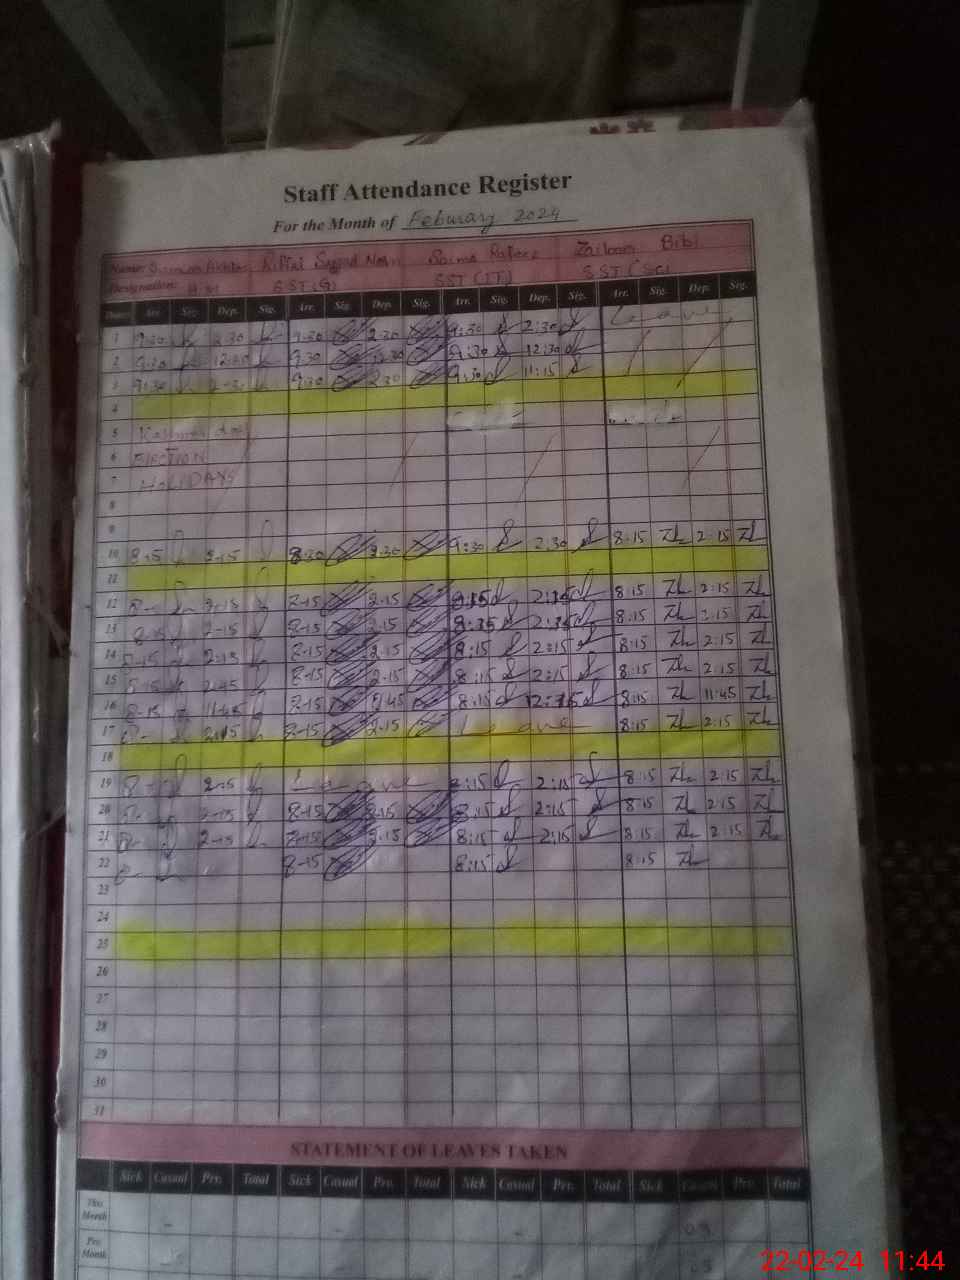 Staff Attendance Register
For the Month of Feburary 2024
Name: Akhter Syyad Saima Rafeeq Bibi
Designation: H.M SST(G) SST(IT) SST(SC)
Dates Arr. Sig. Dep. Sig. Arr. Sig. Dep. Sig. Arr. Sig. Dep. Sig. Arr. Sig. Dep. Sig.
1 9:30 2:30 9:30 2:30 9:30 2:30 Leave
2 9:30 12:30 9:30 12:30 9:30 12:30
3 9:30 2:30 9:30 2:30 9:30 11:15
4
5 Kashmir day
6 ELECTION
7 HOLIDAYS
8
9
10 8-15 2-15 8:30 2:30 9:30 2:30 8:15 2:15
11
12 2-15 8-15 2-15 2:15 8:15 2:15
13 8-15 2-15 8-15 2-15 8:35 2:35 8:15 2:15
14 8-15 2-15 8-15 2-15 8:15 2:15 8:15 2:15
15 8-15 2-15 8-15 2-15 8:15 2:15 8:15 2:15
16 8-15 11-45 8-15 11-45 8:15 8:15 11:45
17 2-15 8-15 2-15 Leave 8:15 2:15
18
19 2-15 Leave 8:15 2:15 8:15 2:15
20 2-15 8-15 2-15 8:15 2:15 8:15 2:15
21 2-15 8-15 2-15 8:15 2:15 8:15 2:15
22 8-15 8:15 8:15
23
24
25
26
27
28
29
30
31
STATEMENT OF LEAVES TAKEN
Sick Casual Prv. Total Sick Casual Prv. Total Sick Casual Prv. Total Sick Casual Prv. Total
This Month
Pre. Month
22-02-24 11:44